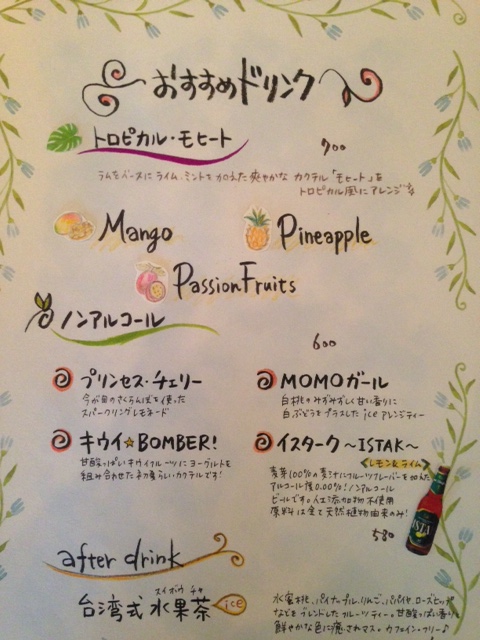 おすすめドリンク
トロピカル・モヒート 700
ラムをベースにライム、ミントを加えた爽やかな カクテル「モヒート」を
トロピカル風にアレンジ♪
Mango
Pineapple
Passion Fruits
ノンアルコール 600
プリンセス・チェリー
今が旬のさくらんぼを使った
スパークリングレモネード
MOMOガール
白桃のみずみずしく甘い香りに
白ぶどうをプラスした iceアレンジティー
キウイ☆BOMBER!
甘酸っぱいキウイフルーツにヨーグルトを
組み合わせた素晴らしいカクテルです!
イスターク 〜ISTAK〜
<レモン&ライム>
麦芽100%の麦汁にフルーツフレーバーを加えた
アルコール度0.00%!ノンアルコール
ビールです。人工添加物不使用
原料は全て天然植物由来のみ!
580
after drink
スイ ボウ チャ
台湾式 水果茶 ice
水蜜桃、パイナップル、りんご、パパイヤ、ローズヒップ
などをブレンドしたフルーツティー。甘酸っぱい香りと
鮮やかな色に癒されマス。カフェイン・フリー♪